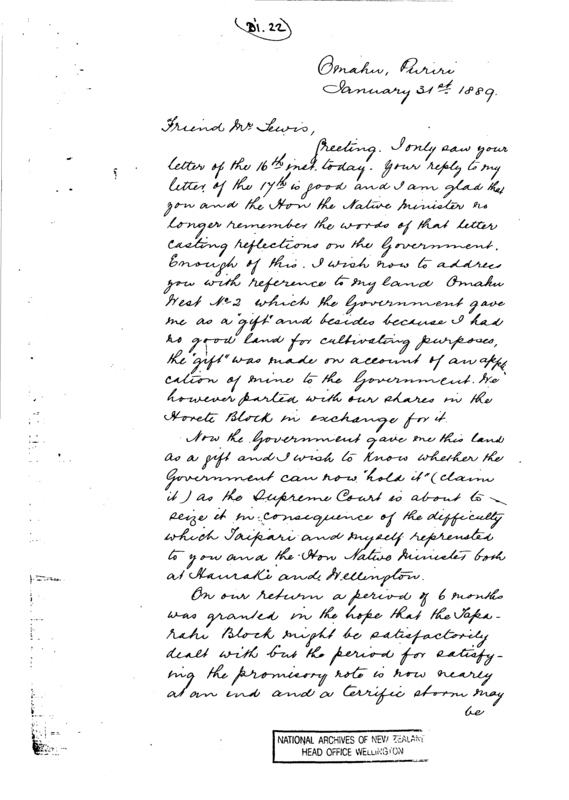 D1.22
Omahu, Puriri
January 31st 1889.
Friend Mr Lewis,
Greeting. I only saw your
letter of the 16th inst. today. Your reply to my
letter of the 17th is good and I am glad that
you and the Hon the Native Minister no
longer remember the words of that letter
casting reflections on the Government.
Enough of this. I wish now to address
you with reference to my land Omahu
West No 2 which the Government gave
me as a "gift" and besides because I had
no good land for cultivating purposes,
the "gift" was made on account of an appli
cation of mine to the Government. We
however parted with our shares in the
Horete Block in exchange for it.
Now the Government gave me this land
as a gift and I wish to know whether the
Government can now "hold it" (claim
it) as the Supreme Court is about to
seize it in consequence of the difficulty
which Taipari and myself reprensted
to you and the Hon Native Minister both
at Hauraki and Wellington.
On our return a period of 6 months
was granted in the hope that the Tapa-
rahi Block might be satisfactorily
dealt with but the period for satisfy-
ing the promisory note is now nearly
at an end and a terrific storm may
be
NATIONAL ARCHIVES OF NEW ZEALAND
HEAD OFFICE WELLINGTON